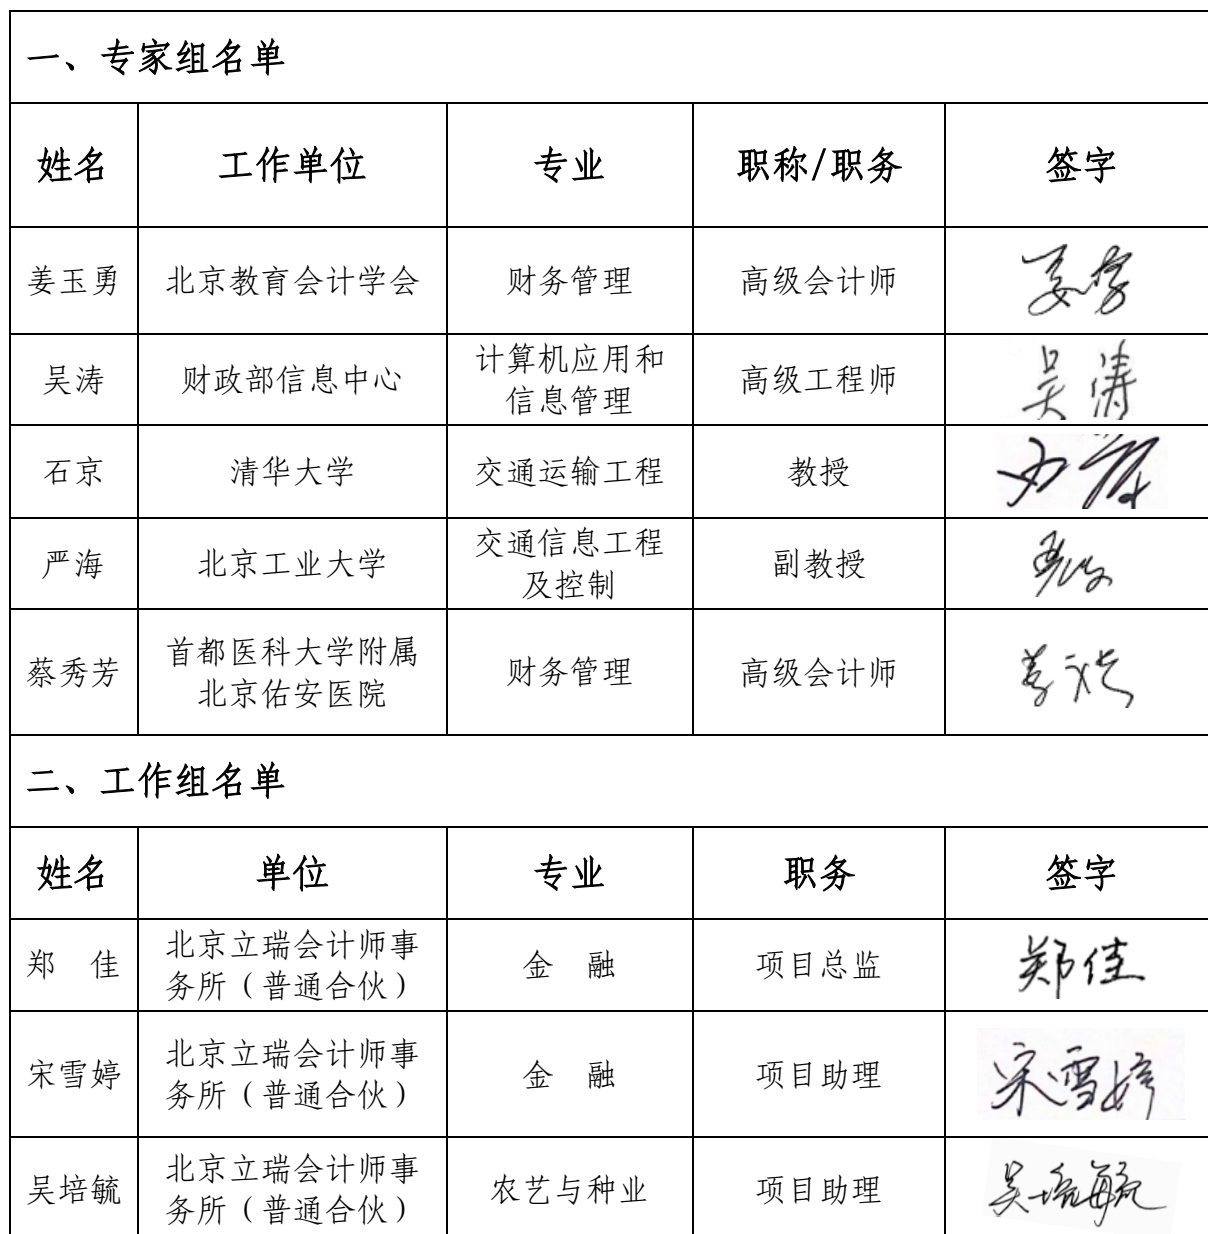 一、专家组名单
姓名 工作单位 专业 职称/职务 签字
姜玉勇 北京教育会计学会 财务管理 高级会计师
吴涛 财政部信息中心 计算机应用和
信息管理 高级工程师 吴涛
石京 清华大学 交通运输工程 教授
严海 北京工业大学 交通信息工程
及控制 副教授
蔡秀芳 首都医科大学附属
北京佑安医院 财务管理 高级会计师
二、工作组名单
姓名 单位 专业 职务 签字
郑 佳 北京立瑞会计师事
务所（普通合伙） 金 融 项目总监 郑佳
宋雪婷 北京立瑞会计师事
务所（普通合伙） 金 融 项目助理 宋雪婷
吴培毓 北京立瑞会计师事
务所（普通合伙） 农艺与种业 项目助理 吴培毓